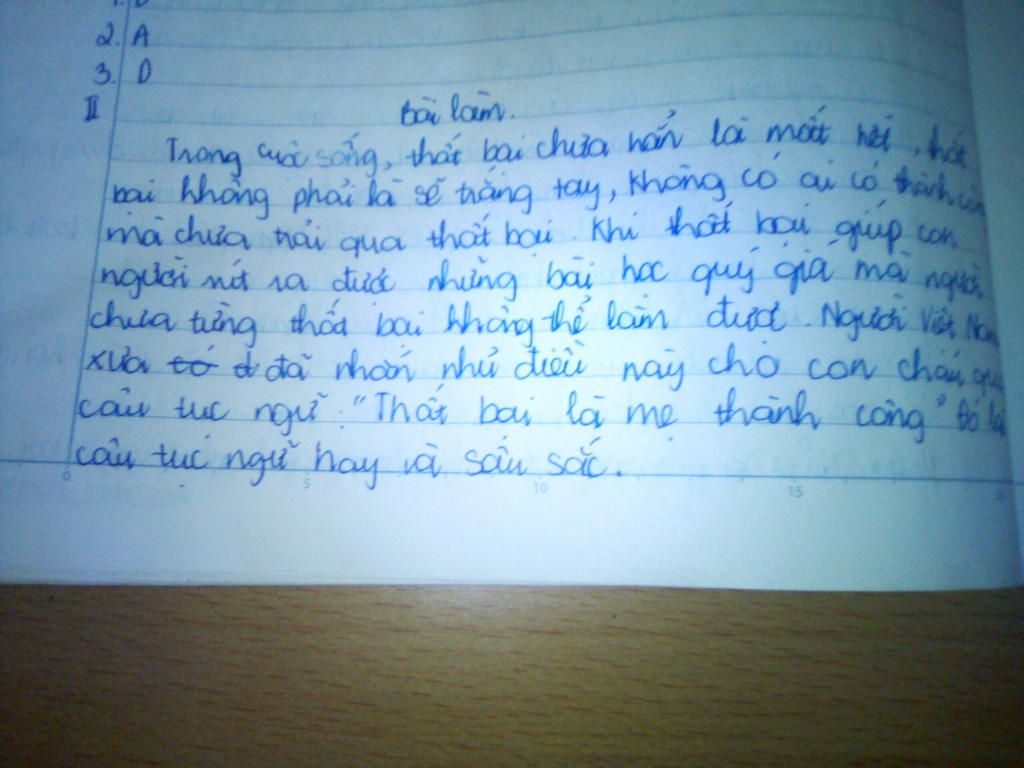 2. A
3. D
II Bài làm.
Trong cuộc sống, thất bại chưa hẳn là mất hết, thất
bại không phải là sẽ trắng tay, không có ai có thành
mà chưa trải qua thất bại. Khi thất bại giúp con
người rút ra được những bài học quý giá mà người
chưa từng thất bại không thể làm được. Người Việt Nam
xưa đã nhắn nhủ điều này cho con cháu qua
câu tục ngữ: "Thất bại là mẹ thành công" Đó là
câu tục ngữ hay và sâu sắc.
0 5 10 15